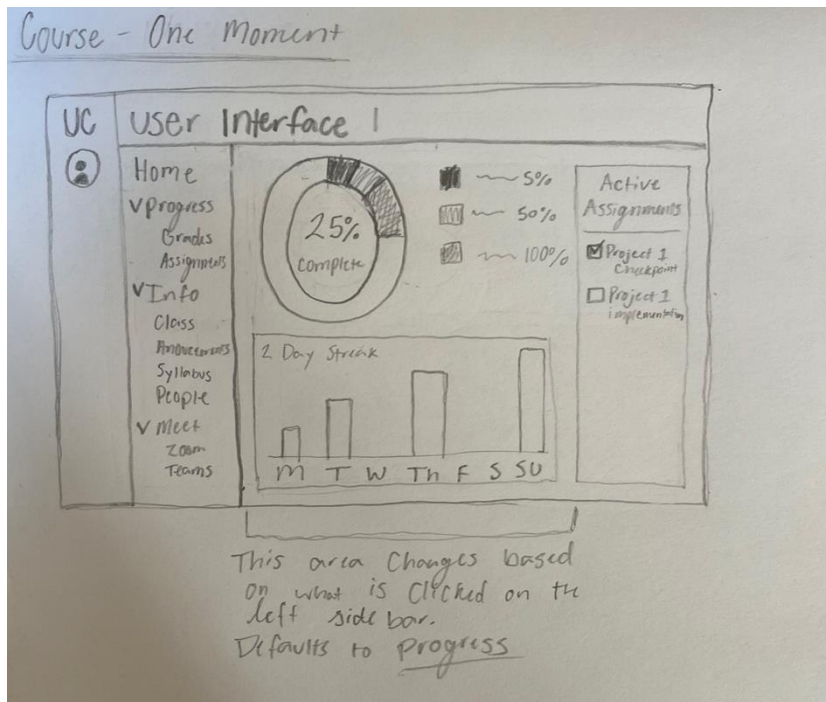 Course - One Moment
UC
User Interface 1
Home
Progress
Grades
Assignments
Info
Class
Syllabus
People
Meet
Zoom
Teams
25%
complete
5%
50%
100%
2 Day Streak
M T W Th F S SU
Active
Assignments
Project 1
Checkpoint
Project 1
implementation
This area Changes based
on what is Clicked on the
left side bar.
Defaults to Progress